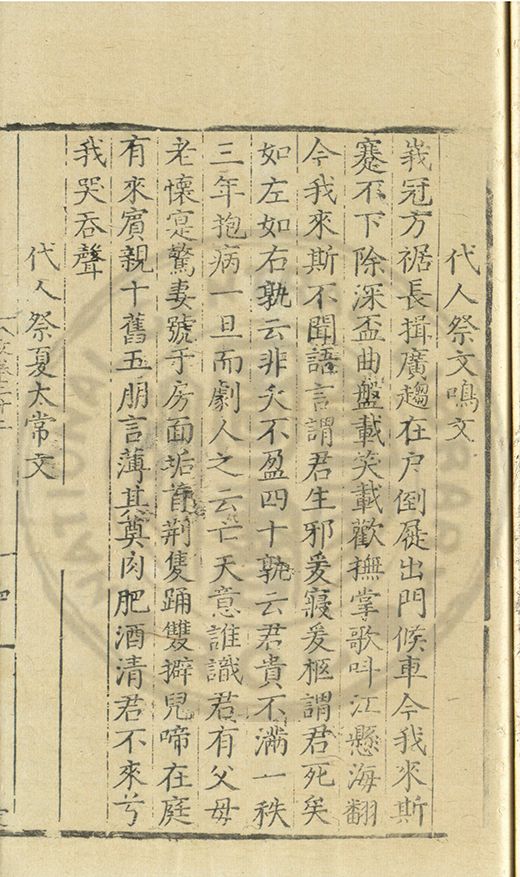 代人祭文鳴文
峩冠方裾長揖廣趨在户倒屣出門候車今我來斯
蹇不下除深盃曲盤載笑載歡撫掌歌呌江懸海翻
今我來斯不聞語言謂君生邪爰寢爰柩謂君死矣
如左如右孰云非夭不盈四十孰云君貴不滿一秩
三年抱病一旦而劇人之云亡天意誰識君有父母
老懷寔驚妻號于房面垢首荆隻踊雙擗兒啼在庭
有來賓親十舊五朋言薄其奠肉肥酒清君不來兮
我哭吞聲
代人祭夏太常文